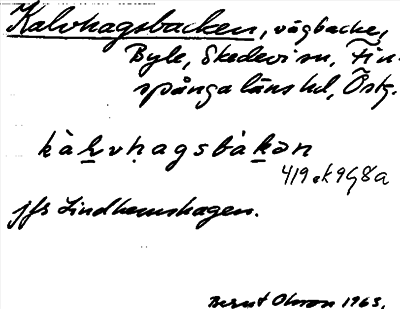 Kalvhagsbacken, vägbacke,
Byle, Skedevi sn, Fin-
spånga läns hd, Östg.
kàḻvḥagsbàḵən
419 ek 9G8a
jfr Lindhemshagen.
Bernt Olsson 1963.